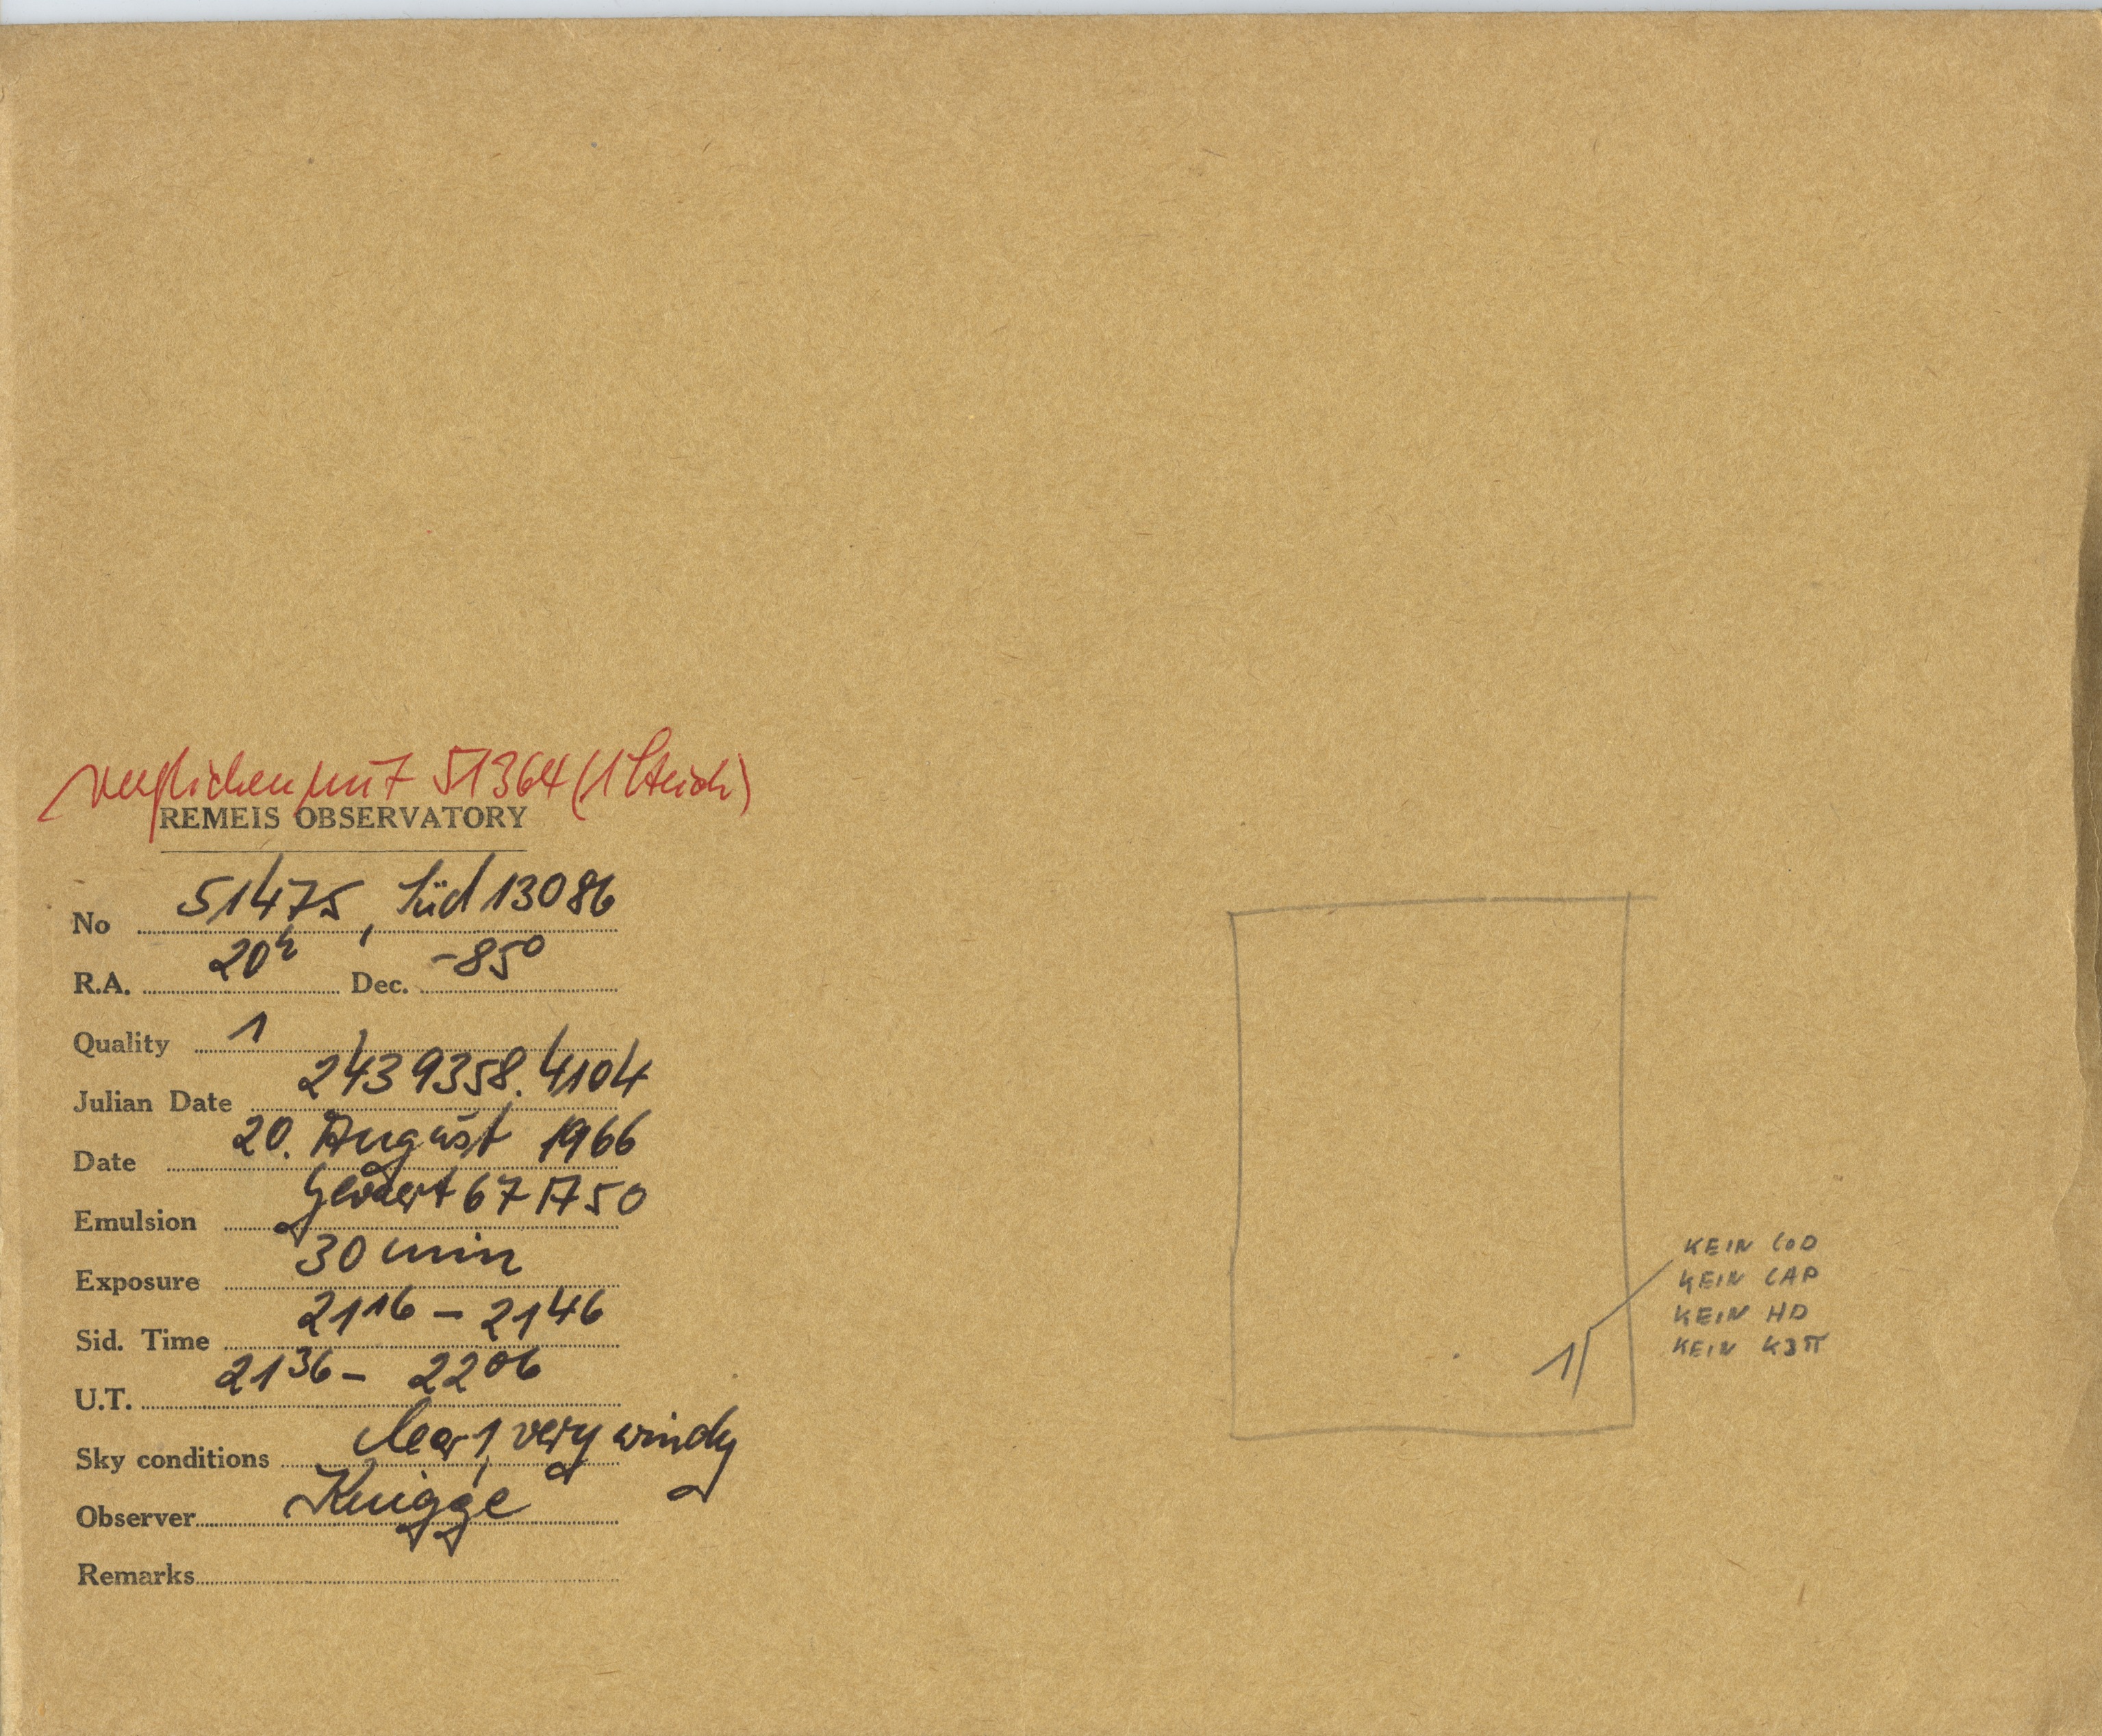 verglichen mit 51364 (1 Strich)
REMEIS OBSERVATORY
No 51475, Süd 13086
R.A. 20h Dec. -85°
Quality 1
Julian Date 2439358.4104
Date 20. August 1966
Emulsion Gevaert 67A50
Exposure 30 min
Sid. Time 21 16 - 21 46
U.T. 21 36 - 22 06
Sky conditions clear 1, very windy
Observer Knigge
Remarks
KEIN CoD
KEIN CAP
KEIN HD
KEIN
1